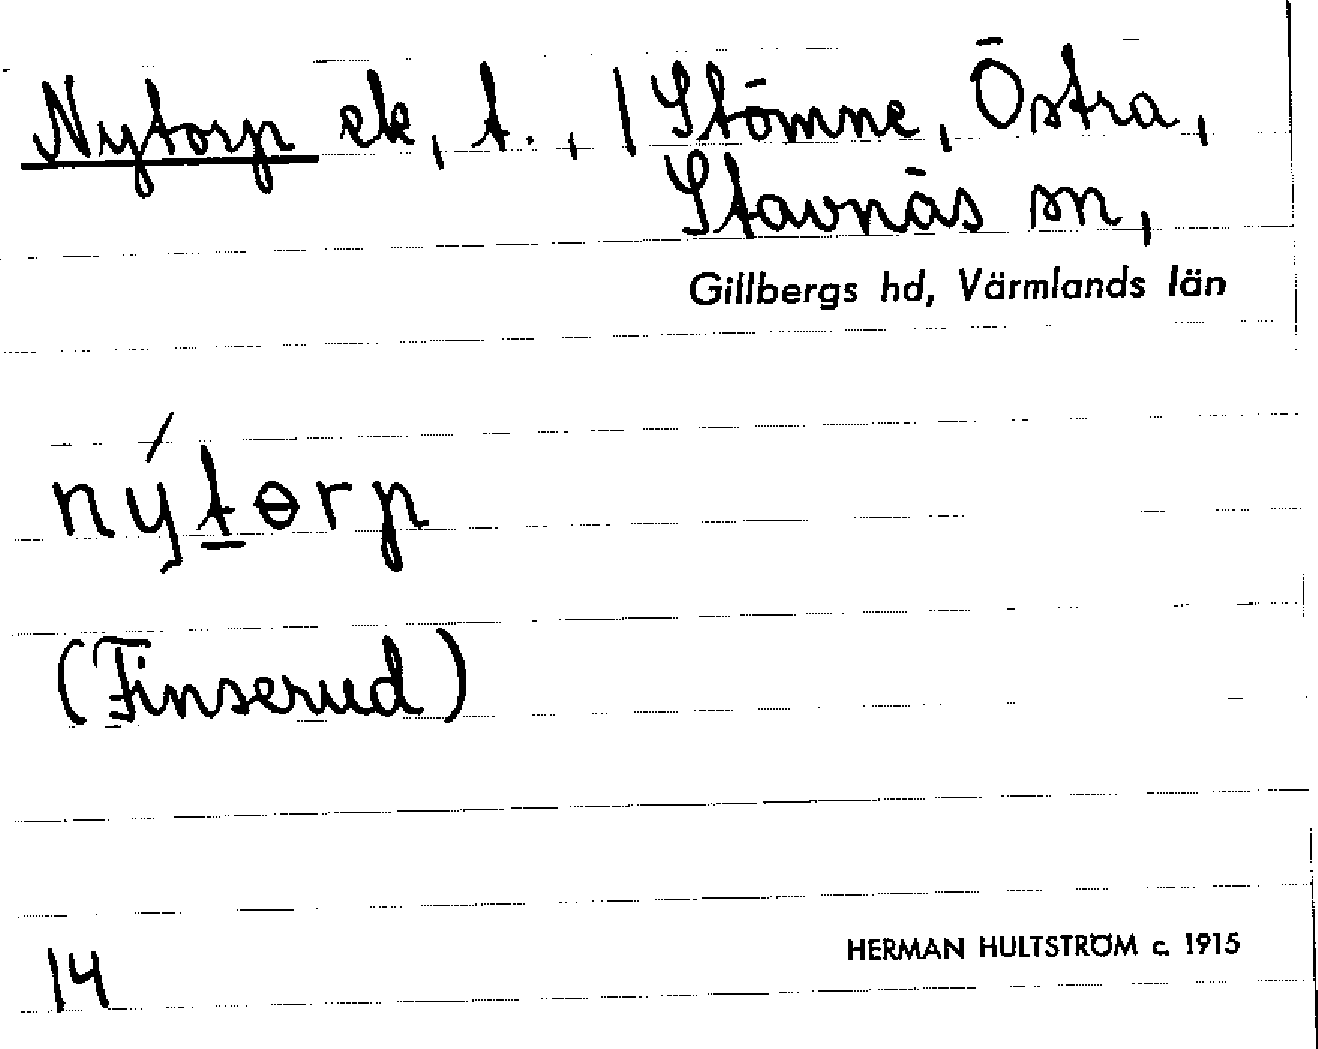 Nytorp ek, t., / Stömne, Östra,
Stavnäs sn,
Gillbergs hd, Värmlands län
nýtɵrp
(Finserud)
14
HERMAN HULTSTRÖM c. 1915